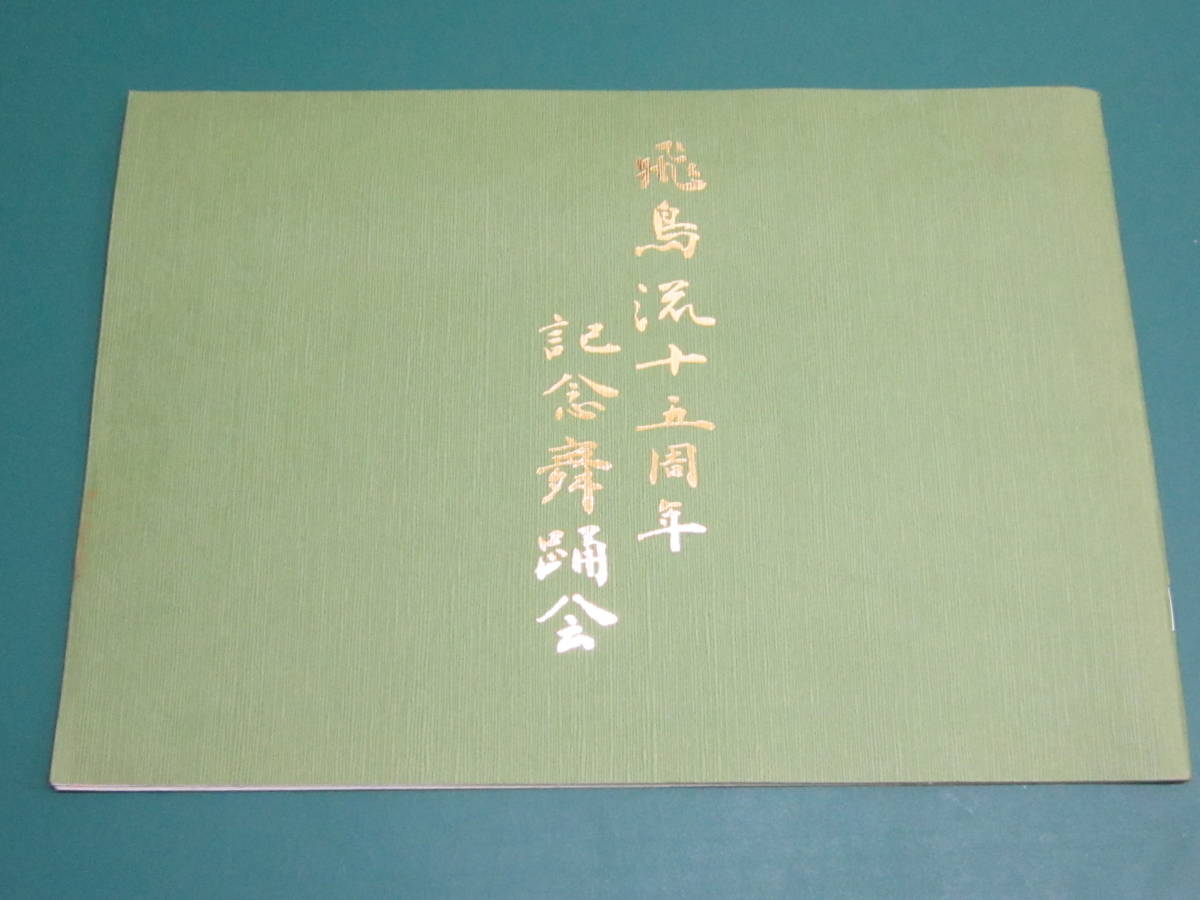 飛鳥流十五周年
記念舞踊会